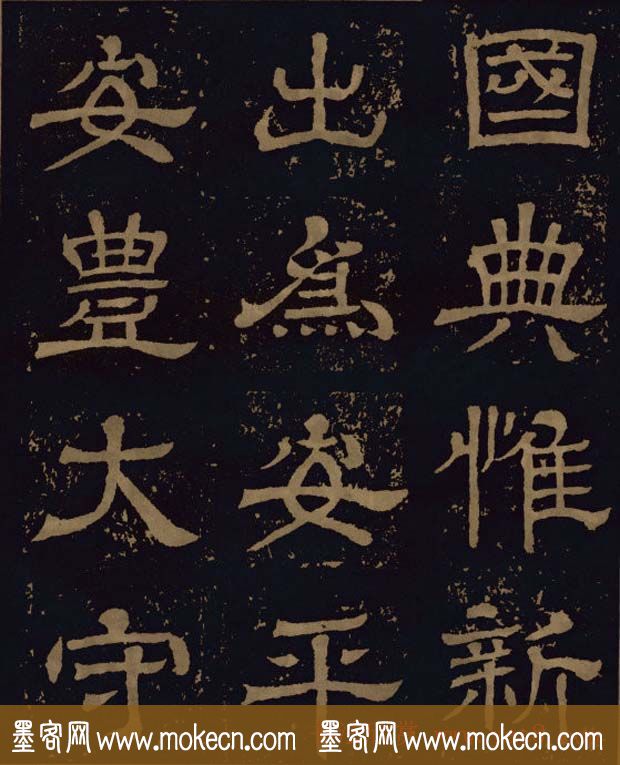 國典惟新
出為安平
安豊大守
墨客网 www.mokecn.com 墨客网 www.mokecn.com